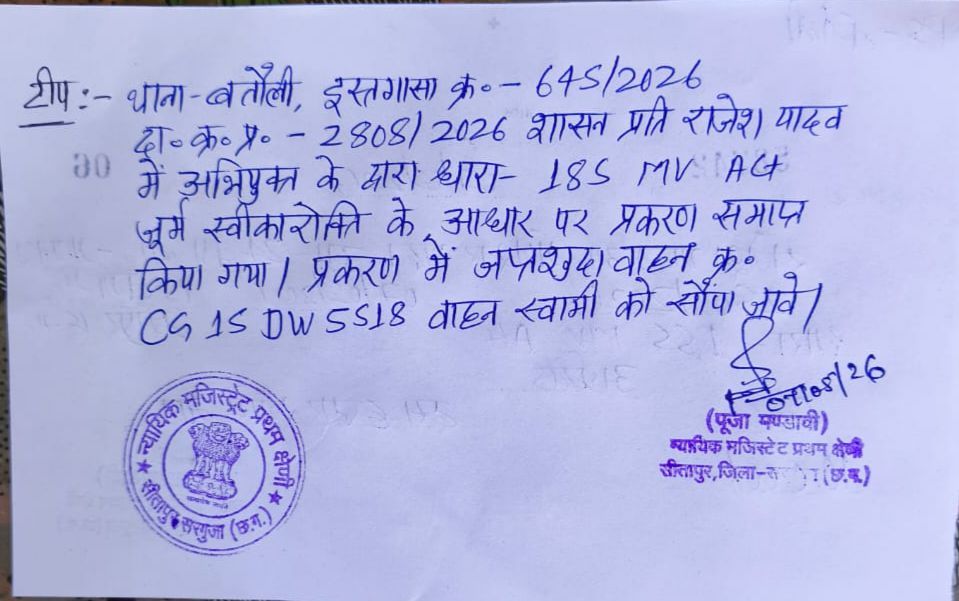 टीप :- थाना-बतौली, इस्तगासा क्र० - 645/2026
दा० क्र० प्र० - 2808/2026 शासन प्रति राजेश यादव
में अभियुक्त के द्वारा धारा- 185 MV Act
जूर्म स्वीकारोक्ति के आधार पर प्रकरण समाप्त
किया गया। प्रकरण में जप्तशुदा वाहन क्र०
CG 15 DW 5518 वाहन स्वामी को सौंपा जावे।
(पूजा मण्डावी)
न्यायिक मजिस्टेट प्रथम श्रेणी
सीतापुर, जिला- (छ.ग.)
न्यायिक मजिस्ट्रेट प्रथम श्रेणी
सीतापुर सरगुजा (छ.ग.)